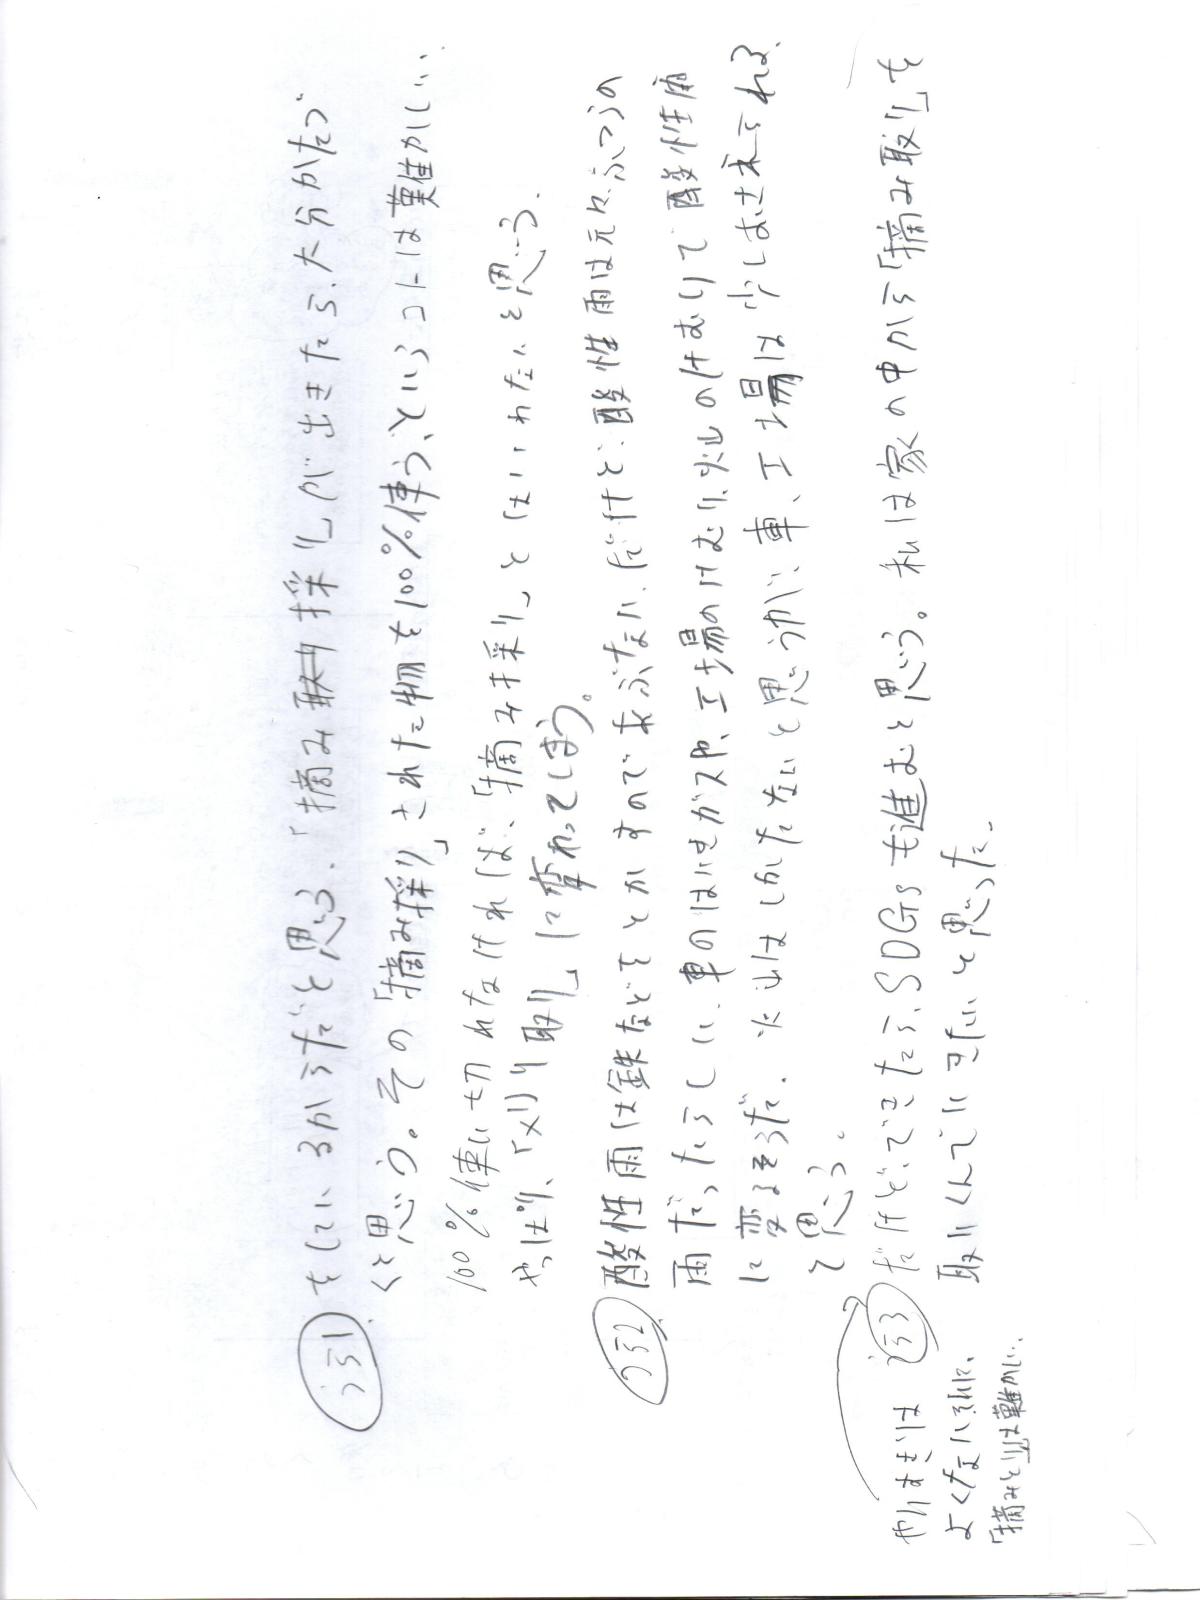 うら1
をしているからだと思う.「摘み取り採り」が出きたら、大分かたづ
くと思う。その「摘み採り」された物を100%使う、というコトは難かしい、
100%使い切れなければ、「摘み採り」とはいわないと思う.
やっぱり、「メリり取り」に変わってしまう。
うら2
酸性雨は鉄などをとかすのであぶない、だけど、酸性雨は元々、ふつうの
雨だったらしい、車のはいきガスや、工場のけむり、火山のけむりで酸性雨
に変るそうだ. 火山はしかたないと思うが、車、工場は少しおさえてれる
と思う。
うら3
だけど、できたら、SDGsも進むと思う。私は家の中から「摘み取り」を
取りくんでいきたいと思った.
やりすぎは
よくないそれに、
「摘みとり」は難かしい.